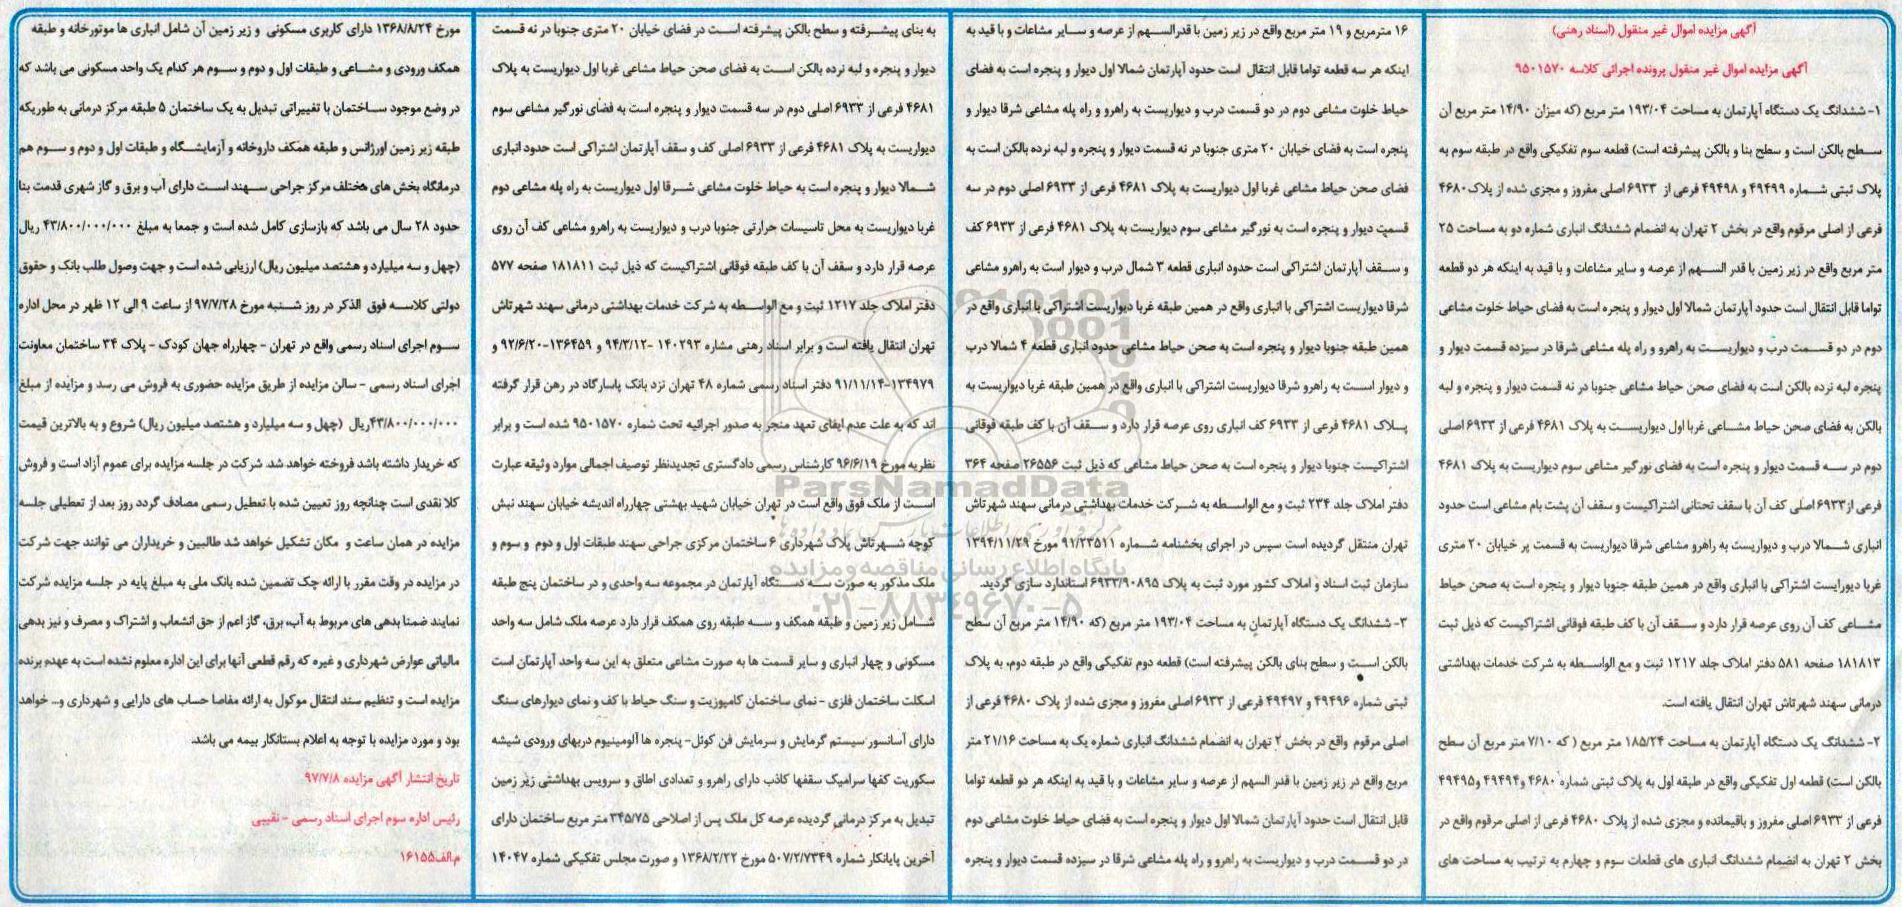 آگهی مزایده اموال غیر منقول (اسناد رهنی)
آگهی مزایده اموال غیر منقول پرونده اجرائی کلاسه ۹۵۰۱۵۷۰
۱- ششدانگ یک دستگاه آپارتمان به مساحت ۱۹۳/۰۴ متر مربع (که میزان ۱۴/۹۰ متر مربع آن
سطح بالکن است و سطح بنا و بالکن پیشرفته است) قطعه سوم تفکیکی واقع در طبقه سوم به
پلاک ثبتی شماره ۴۹۴۹۹ و ۴۹۴۹۸ فرعی از ۶۹۳۳ اصلی مفروز و مجزی شده از پلاک ۴۶۸۰
فرعی از اصلی مرقوم واقع در بخش ۲ تهران به انضمام ششدانگ انباری شماره دو به مساحت ۲۵
متر مربع واقع در زیر زمین با قدر السهم از عرصه و سایر مشاعات و با قید به اینکه هر دو قطعه
تواما قابل انتقال است حدود آپارتمان شمالا اول دیوار و پنجره است به فضای حیاط خلوت مشاعی
دوم در دو قسمت درب و دیواریست به راهرو و راه پله مشاعی شرقا در سیزده قسمت دیوار و
پنجره لبه نرده بالکن است به فضای صحن حیاط مشاعی جنوبا در نه قسمت دیوار و پنجره و لبه
بالکن به فضای صحن حیاط مشاعی غربا اول دیواریست به پلاک ۴۶۸۱ فرعی از ۶۹۳۳ اصلی
دوم در سه قسمت دیوار و پنجره است به فضای نورگیر مشاعی سوم دیواریست به پلاک ۴۶۸۱
فرعی از۶۹۳۳ اصلی کف آن با سقف تحتانی اشتراکیست و سقف آن پشت بام مشاعی است حدود
انباری شمالا درب و دیواریست به راهرو مشاعی شرقا دیواریست به قسمت پر خیابان ۲۰ متری
غربا دیورایست اشتراکی با انباری واقع در همین طبقه جنوبا دیوار و پنجره است به صحن حیاط
مشاعی کف آن روی عرصه قرار دارد و سقف آن با کف طبقه فوقانی اشتراکیست که ذیل ثبت
۱۸۱۸۱۳ صفحه ۵۸۱ دفتر املاک جلد ۱۲۱۷ ثبت و مع الواسطه به شرکت خدمات بهداشتی
درمانی سهند شهرتاش تهران انتقال یافته است.
۲- ششدانگ یک دستگاه آپارتمان به مساحت ۱۸۵/۲۴ متر مربع ( که ۷/۱۰ متر مربع آن سطح
بالکن است) قطعه اول تفکیکی واقع در طبقه اول به پلاک ثبتی شماره ۴۶۸۰ و۴۹۴۹۴ و۴۹۴۹۵
فرعی از ۶۹۳۳ اصلی مفروز و باقیمانده و مجزی شده از پلاک ۴۶۸۰ فرعی از اصلی مرقوم واقع در
بخش ۲ تهران به انضمام ششدانگ انباری های قطعات سوم و چهارم به ترتیب به مساحت های
۱۶ مترمربع و ۱۹ متر مربع واقع در زیر زمین با قدرالسهم از عرصه و سایر مشاعات و با قید به
اینکه هر سه قطعه تواما قابل انتقال است حدود آپارتمان شمالا اول دیوار و پنجره است به فضای
حیاط خلوت مشاعی دوم در دو قسمت درب و دیواریست به راهرو و راه پله مشاعی شرقا دیوار و
پنجره است به فضای خیابان ۲۰ متری جنوبا در نه قسمت دیوار و پنجره و لبه نرده بالکن است به
فضای صحن حیاط مشاعی غربا اول دیواریست به پلاک ۴۶۸۱ فرعی از ۶۹۳۳ اصلی دوم در سه
قسمت دیوار و پنجره است به نورگیر مشاعی سوم دیواریست به پلاک ۴۶۸۱ فرعی از ۶۹۳۳ کف
و سقف آپارتمان اشتراکی است حدود انباری قطعه ۳ شمال درب و دیوار است به راهرو مشاعی
شرقا دیواریست اشتراکی با انباری واقع در همین طبقه غربا دیواریست اشتراکی با انباری واقع در
همین طبقه جنوبا دیوار و پنجره است به صحن حیاط مشاعی حدود انباری قطعه ۴ شمالا درب
و دیوار است به راهرو شرقا دیواریست اشتراکی با انباری واقع در همین طبقه غربا دیواریست به
پلاک ۴۶۸۱ فرعی از ۶۹۳۳ کف انباری روی عرصه قرار دارد و سقف آن با کف طبقه فوقانی
اشتراکیست جنوبا دیوار و پنجره است به صحن حیاط مشاعی که ذیل ثبت ۲۶۵۵۶ صفحه ۳۶۴
دفتر املاک جلد ۲۳۴ ثبت و مع الواسطه به شرکت خدمات بهداشتی درمانی سهند شهرتاش
تهران منتقل گردیده است سپس در اجرای بخشنامه شماره ۹۱/۲۳۵۱۱ مورخ ۱۳۹۴/۱۱/۲۹
سازمان ثبت اسناد و املاک کشور مورد ثبت به پلاک ۶۹۳۳/۹۰۸۹۵ استاندارد سازی گردید.
۳- ششدانگ یک دستگاه آپارتمان به مساحت ۱۹۳/۰۴ متر مربع (که ۱۴/۹۰ متر مربع آن سطح
بالکن است و سطح بنای بالکن پیشرفته است) قطعه دوم تفکیکی واقع در طبقه دوم، به پلاک
ثبتی شماره ۴۹۴۹۶ و ۴۹۴۹۷ فرعی از ۶۹۳۳ اصلی مفروز و مجزی شده از پلاک ۴۶۸۰ فرعی از
اصلی مرقوم واقع در بخش ۲ تهران به انضمام ششدانگ انباری شماره یک به مساحت ۲۱/۱۶ متر
مربع واقع در زیر زمین با قدر السهم از عرصه و سایر مشاعات و با قید به اینکه هر دو قطعه تواما
قابل انتقال است حدود آپارتمان شمالا اول دیوار و پنجره است به فضای حیاط خلوت مشاعی دوم
در دو قسمت درب و دیواریست به راهرو و راه پله مشاعی شرقا در سیزده قسمت دیوار و پنجره
به بنای پیشرفته و سطح بالکن پیشرفته است در فضای خیابان ۲۰ متری جنوبا در نه قسمت
دیوار و پنجره و لبه نرده بالکن است به فضای صحن حیاط مشاعی غربا اول دیواریست به پلاک
۴۶۸۱ فرعی از ۶۹۳۳ اصلی دوم در سه قسمت دیوار و پنجره است به فضای نورگیر مشاعی سوم
دیواریست به پلاک ۴۶۸۱ فرعی از ۶۹۳۳ اصلی کف و سقف آپارتمان اشتراکی است حدود انباری
شمالا دیوار و پنجره است به حیاط خلوت مشاعی شرقا اول دیواریست به راه پله مشاعی دوم
غربا دیواریست به محل تاسیسات حرارتی جنوبا درب و دیواریست به راهرو مشاعی کف آن روی
عرصه قرار دارد و سقف آن با کف طبقه فوقانی اشتراکیست که ذیل ثبت ۱۸۱۸۱۱ صفحه ۵۷۷
دفتر املاک جلد ۱۲۱۷ ثبت و مع الواسطه به شرکت خدمات بهداشتی درمانی سهند شهرتاش
تهران انتقال یافته است و برابر اسناد رهنی مشاره ۱۴۰۲۹۳ -۹۴/۳/۱۲ و ۱۳۶۴۵۹-۹۲/۶/۲۰ و
۱۳۴۹۷۹-۹۱/۱۱/۱۴ دفتر اسناد رسمی شماره ۴۸ تهران نزد بانک پاسارگاد در رهن قرار گرفته
اند که به علت عدم ایفای تعهد منجر به صدور اجرائیه تحت شماره ۹۵۰۱۵۷۰ شده است و برابر
نظریه مورخ ۹۶/۶/۱۹ کارشناس رسمی دادگستری تجدیدنظر توصیف اجمالی موارد وثیقه عبارت
است از ملک فوق واقع است در تهران خیابان شهید بهشتی چهارراه اندیشه خیابان سهند نبش
کوچه شهرتاش پلاک شهرداری ۶ ساختمان مرکزی جراحی سهند طبقات اول و دوم و سوم و
ملک مذکور به صورت سه دستگاه آپارتمان در مجموعه سه واحدی و در ساختمان پنج طبقه
شامل زیر زمین و طبقه همکف و سه طبقه روی همکف قرار دارد عرصه ملک شامل سه واحد
مسکونی و چهار انباری و سایر قسمت ها به صورت مشاعی متعلق به این سه واحد آپارتمان است
اسکلت ساختمان فلزی - نمای ساختمان کامپوزیت و سنگ حیاط با کف و نمای دیوارهای سنگ
دارای آسانسور سیستم گرمایش و سرمایش فن کوئل- پنجره ها آلومینیوم دربهای ورودی شیشه
سکوریت کفها سرامیک سقفها کاذب دارای راهرو و تعدادی اطاق و سرویس بهداشتی زیر زمین
تبدیل به مرکز درمانی گردیده عرصه کل ملک پس از اصلاحی ۳۴۵/۷۵ متر مربع ساختمان دارای
آخرین پایانکار شماره ۵۰۷/۲/۷۳۴۹ مورخ ۱۳۶۸/۲/۲۲ و صورت مجلس تفکیکی شماره ۱۴۰۴۷
مورخ ۱۳۶۸/۸/۲۴ دارای کاربری مسکونی و زیر زمین آن شامل انباری ها موتورخانه و طبقه
همکف ورودی و مشاعی و طبقات اول و دوم و سوم هر کدام یک واحد مسکونی می باشد که
در وضع موجود ساختمان با تغییراتی تبدیل به یک ساختمان ۵ طبقه مرکز درمانی به طوریکه
طبقه زیر زمین اورژانس و طبقه همکف داروخانه و آزمایشگاه و طبقات اول و دوم و سوم هم
درمانگاه بخش های مختلف مرکز جراحی سهند است دارای آب و برق و گاز شهری قدمت بنا
حدود ۲۸ سال می باشد که بازسازی کامل شده است و جمعا به مبلغ ۴۳/۸۰۰/۰۰۰/۰۰۰ ریال
(چهل و سه میلیارد و هشتصد میلیون ریال) ارزیابی شده است و جهت وصول طلب بانک و حقوق
دولتی کلاسه فوق الذکر در روز شنبه مورخ ۹۷/۷/۲۸ از ساعت ۹ الی ۱۲ ظهر در محل اداره
سوم اجرای اسناد رسمی واقع در تهران - چهارراه جهان کودک - پلاک ۳۴ ساختمان معاونت
اجرای اسناد رسمی - سالن مزایده از طریق مزایده حضوری به فروش می رسد و مزایده از مبلغ
۴۳/۸۰۰/۰۰۰/۰۰۰ریال (چهل و سه میلیارد و هشتصد میلیون ریال) شروع و به بالاترین قیمت
که خریدار داشته باشد فروخته خواهد شد. شرکت در جلسه مزایده برای عموم آزاد است و فروش
کلا نقدی است چنانچه روز تعیین شده با تعطیل رسمی مصادف گردد روز بعد از تعطیلی جلسه
مزایده در همان ساعت و مکان تشکیل خواهد شد طالبین و خریداران می توانند جهت شرکت
در مزایده در وقت مقرر با ارائه چک تضمین شده بانک ملی به مبلغ پایه در جلسه مزایده شرکت
نمایند ضمنا بدهی های مربوط به آب، برق، گاز اعم از حق انشعاب و اشتراک و مصرف و نیز بدهی
مالیاتی عوارض شهرداری و غیره که رقم قطعی آنها برای این اداره معلوم نشده است به عهده برنده
مزایده است و تنظیم سند انتقال موکول به ارائه مفاصا حساب های دارایی و شهرداری و... خواهد
بود و مورد مزایده با توجه به اعلام بستانکار بیمه می باشد.
تاریخ انتشار آگهی مزایده ۹۷/۷/۸
رئیس اداره سوم اجرای اسناد رسمی - نقیبی
م.الف۱۶۱۵۵
ParsNamadData
پایگاه اطلاع رسانی مناقصه و مزایده
۰۲۱-۸۸۳۴۹۶۷۰-۵